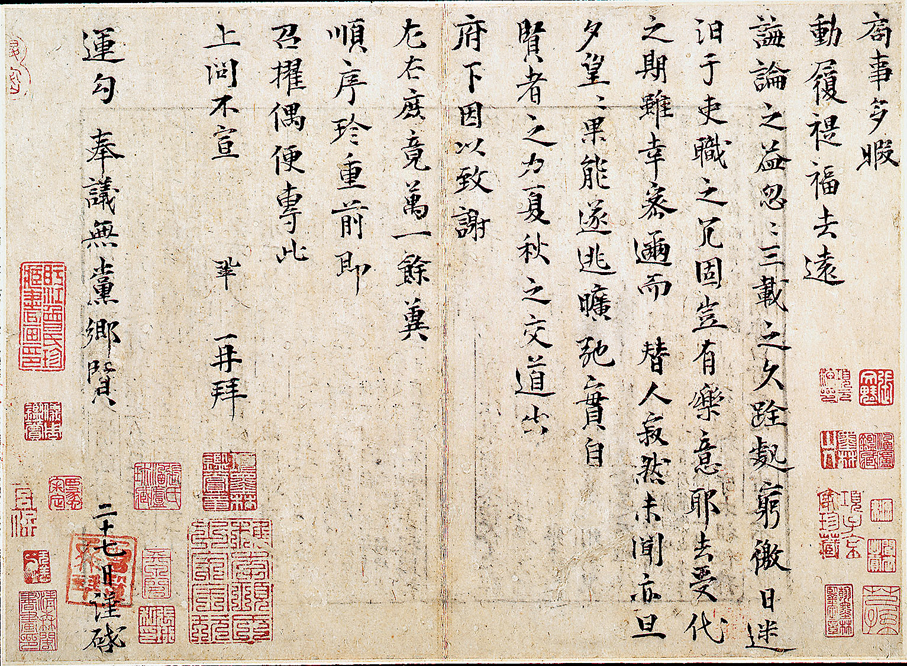 局事多暇
動履禔福去遠
誨論之益忽〻三載之久跧處窮徼日迷
汩于吏職之冗固豈有樂意耶去受代
之期雖幸密邇而　替人寂然未聞亦旦
夕望〻果能遂逃曠弛實自
賢者之力夏秋之交道出
府下因以致謝
左右庶竟萬一餘冀
順序珍重前即
召擢偶便專此
上問不宣　　　鞏　再拜
運勾　奉議無黨鄉賢　　二十七日謹啓